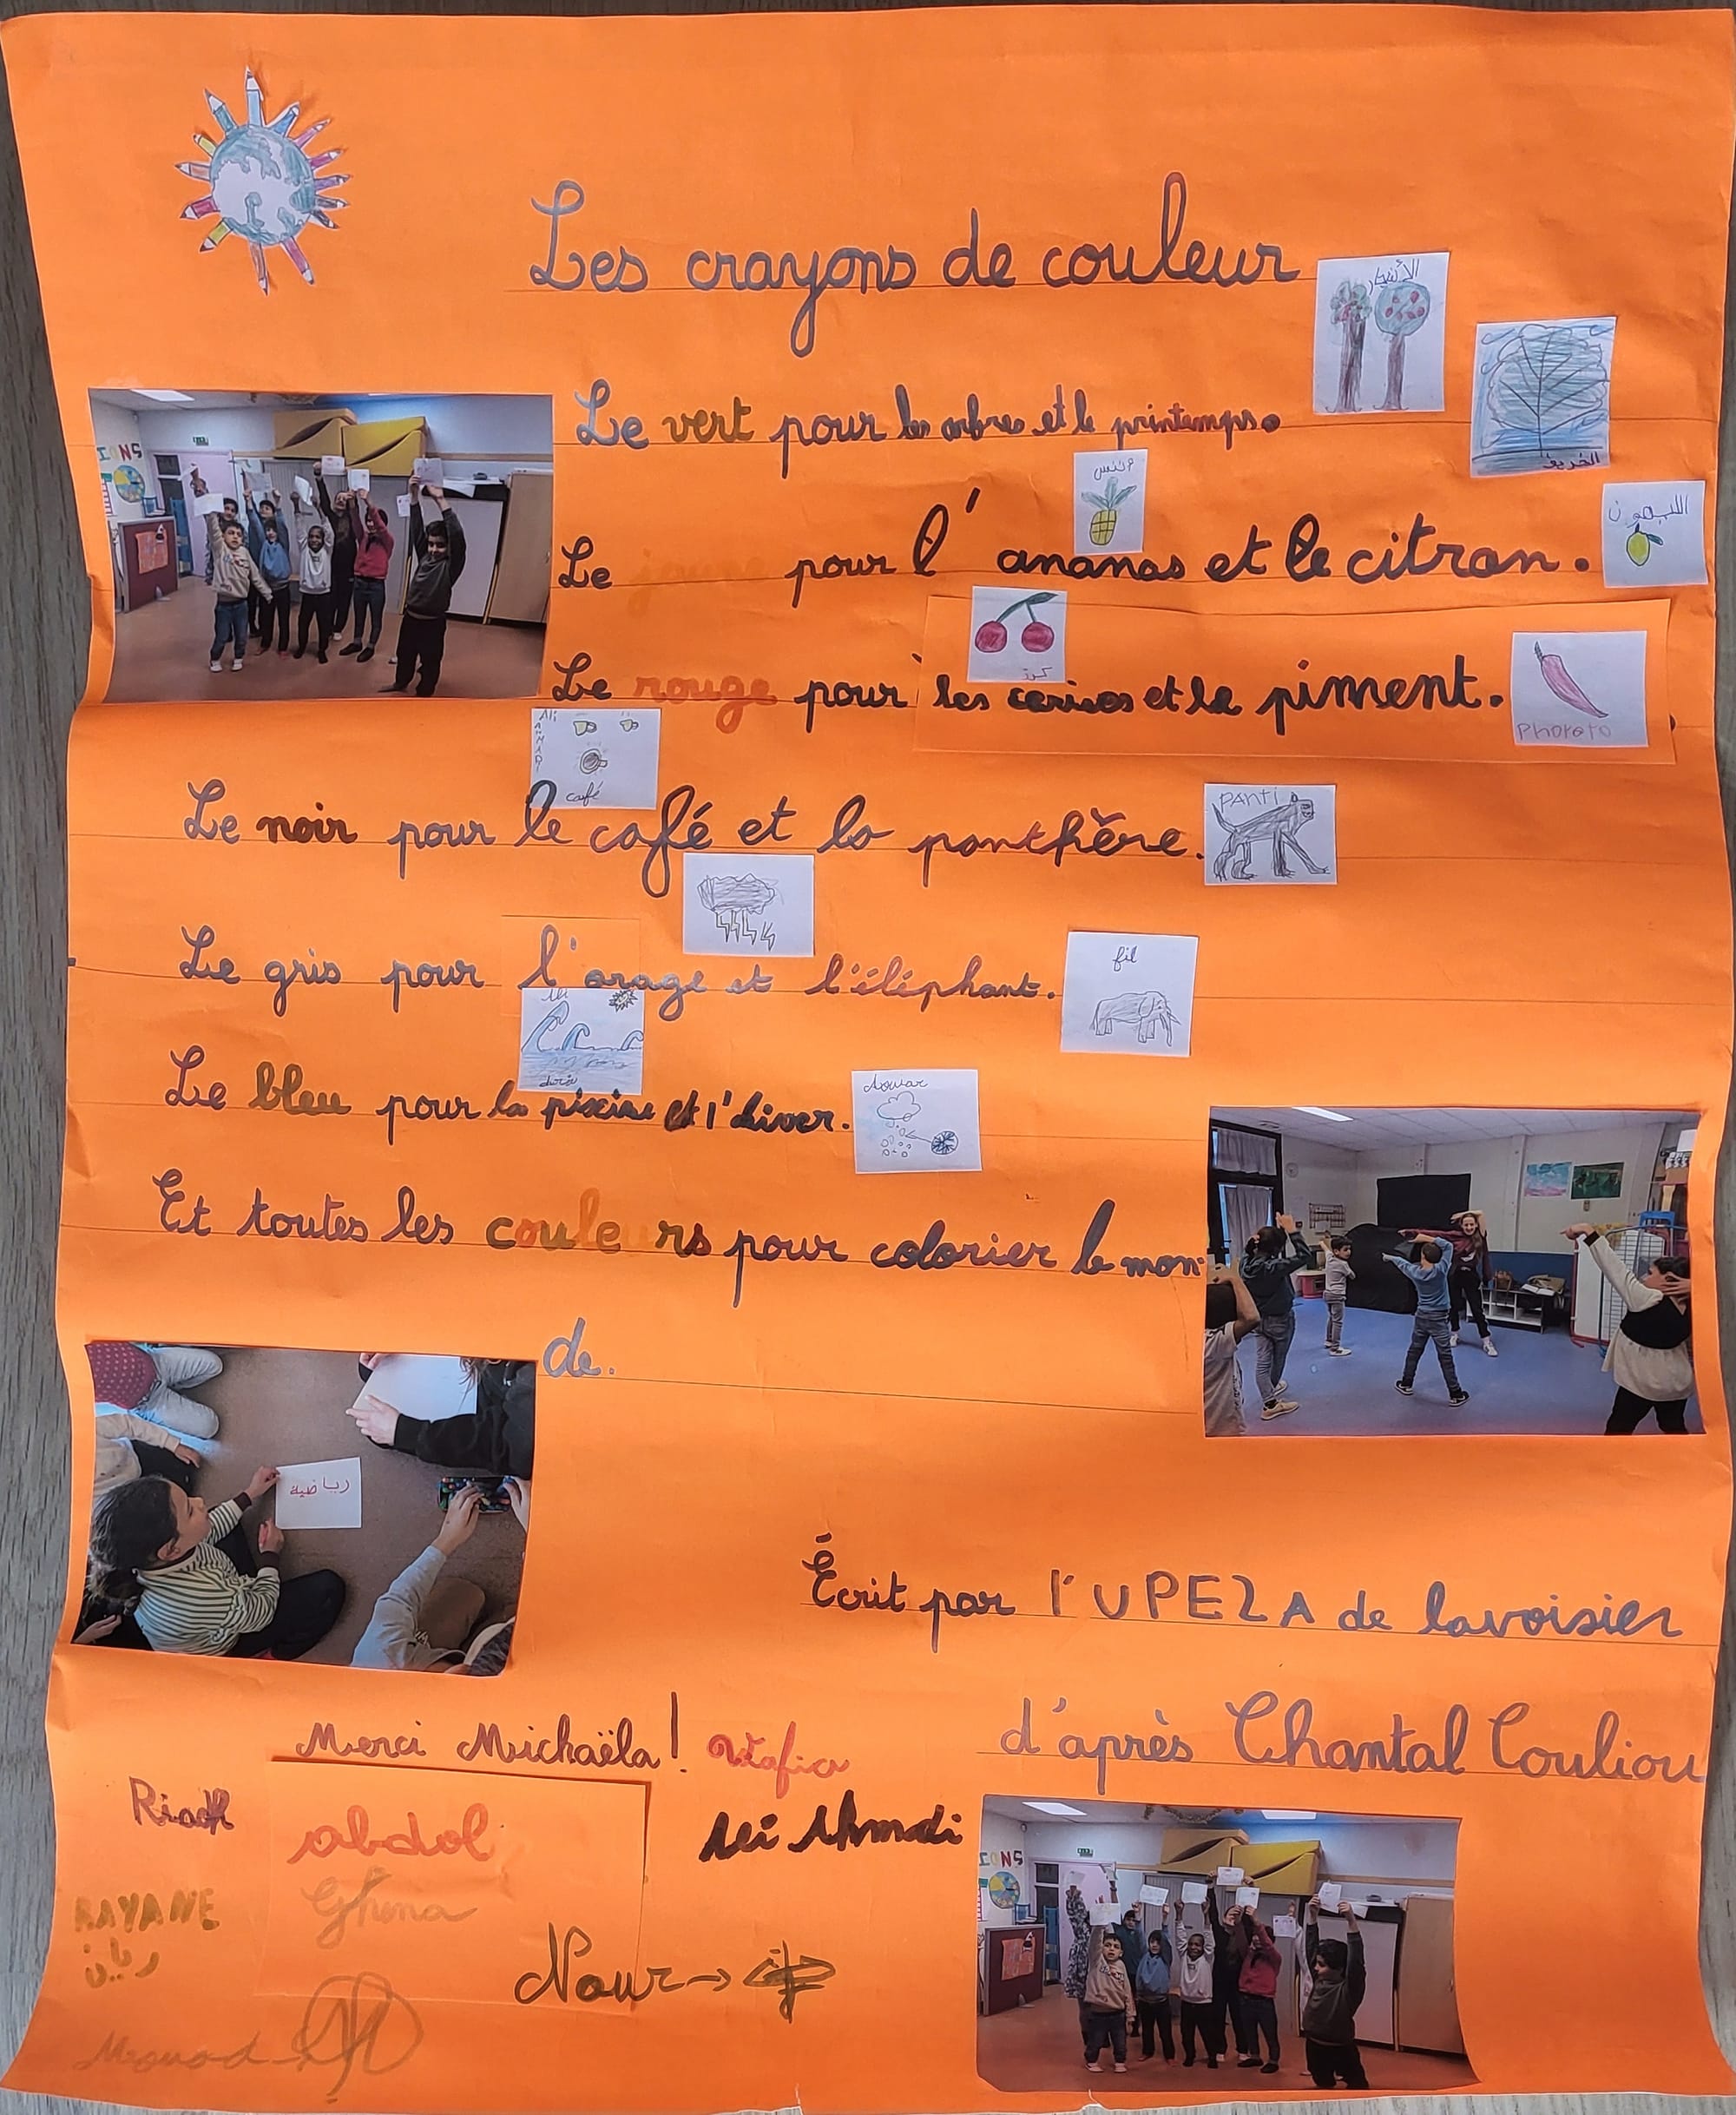 Les crayons de couleur
الأشجار
Le vert pour les arbres et le printemps.
الخريف
Le jaune pour l'ananas et le citran.
الليمون
Le rouge pour les cerises et le piment.
كرز
PHOTOTO
Ali
AHMADI
café
Le noir pour le café et la panthère.
PANTI
Le gris pour l'orage et l'éléphant.
fil
Le bleu pour la piscine et l'hiver.
Et toutes les couleurs pour colorier le mon-
de.
رياضية
Écrit par l'UPE2A de lavoisier
d'après Chantal Couliou
Merci Michaëla!
Riadh
abdol
Ali Ahmadi
RAYANE
ريان
Ghina
Nour→
Mouad→
IONS
IONS